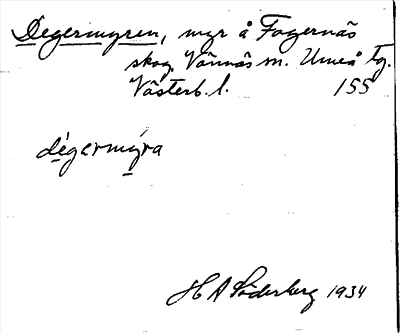 Degermyren, myr å Fagernäs
skog. Vännäs m. Umeå tg.
Västerb. l. 155
dégermýra
H A Söderberg 1934